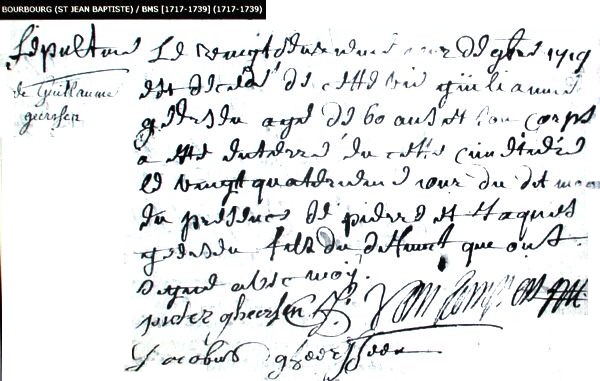 BOURBOURG (ST JEAN BAPTISTE) / BMS [1717-1739] (1717-1739)
Sépulture
de Guillaume
geersen
Le vingt deuxieme jour de 9bre 1719
est decedé de cette vie guiliaume
geersen agé de 60 ans et son corps
a esté enterré en cette cimetiere
le vingt quatriesme jour du dit mois
en presence de pierre et Jaques
geersen fils du deffunct que ont
signé avec moy.
pieter gheersen
Jacobus gheerssen